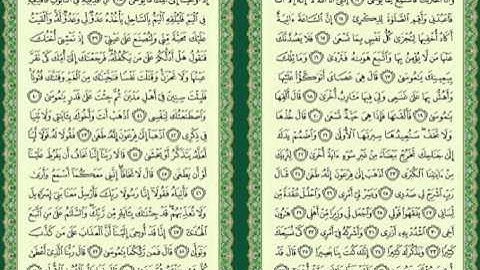 وَأَنَا ٱخْتَرْتُكَ فَٱسْتَمِعْ لِمَا يُوحَىٰٓ ١٣ إِنَّنِىٓ أَنَا ٱللَّهُ لَآ إِلَٰهَ إِلَّآ أَنَا۠
فَٱعْبُدْنِى وَأَقِمِ ٱلصَّلَوٰةَ لِذِكْرِىٓ ١٤ إِنَّ ٱلسَّاعَةَ ءَاتِيَةٌ
أَكَادُ أُخْفِيهَا لِتُجْزَىٰ كُلُّ نَفْسٍۭ بِمَا تَسْعَىٰ ١٥ فَلَا يَصُدَّنَّكَ
عَنْهَا مَن لَّا يُؤْمِنُ بِهَا وَٱتَّبَعَ هَوَىٰهُ فَتَرْدَىٰ ١٦ وَمَا تِلْكَ
بِيَمِينِكَ يَٰمُوسَىٰ ١٧ قَالَ هِىَ عَصَاىَ أَتَوَكَّؤُا۟ عَلَيْهَا
وَأَهُشُّ بِهَا عَلَىٰ غَنَمِى وَلِىَ فِيهَا مَـَٔارِبُ أُخْرَىٰ ١٨ قَالَ أَلْقِهَا
يَٰمُوسَىٰ ١٩ فَأَلْقَىٰهَا فَإِذَا هِىَ حَيَّةٌ تَسْعَىٰ ٢٠ قَالَ خُذْهَا
وَلَا تَخَفْ سَنُعِيدُهَا سِيرَتَهَا ٱلْأُولَىٰ ٢١ وَٱضْمُمْ يَدَكَ
إِلَىٰ جَنَاحِكَ تَخْرُجْ بَيْضَآءَ مِنْ غَيْرِ سُوٓءٍ ءَايَةً أُخْرَىٰ ٢٢
لِنُرِيَكَ مِنْ ءَايَٰتِنَا ٱلْكُبْرَى ٢٣ ٱذْهَبْ إِلَىٰ فِرْعَوْنَ إِنَّهُۥ طَغَىٰ ٢٤ قَالَ
رَبِّ ٱشْرَحْ لِى صَدْرِى ٢٥ وَيَسِّرْ لِىٓ أَمْرِى ٢٦ وَٱحْلُلْ عُقْدَةً مِّن
لِّسَانِى ٢٧ يَفْقَهُوا۟ قَوْلِى ٢٨ وَٱجْعَل لِّى وَزِيرًا مِّنْ أَهْلِى ٢٩ هَٰرُونَ
أَخِى ٣٠ ٱشْدُدْ بِهِۦٓ أَزْرِى ٣١ وَأَشْرِكْهُ فِىٓ أَمْرِى ٣٢ كَىْ نُسَبِّحَكَ
كَثِيرًا ٣٣ وَنَذْكُرَكَ كَثِيرًا ٣٤ إِنَّكَ كُنتَ بِنَا بَصِيرًا ٣٥ قَالَ قَدْ
إِذْ أَوْحَيْنَآ إِلَىٰٓ أُمِّكَ مَا يُوحَىٰٓ ٣٨ أَنِ ٱقْذِفِيهِ فِى ٱلتَّابُوتِ فَٱقْذِفِيهِ
فِى ٱلْيَمِّ فَلْيُلْقِهِ ٱلْيَمُّ بِٱلسَّاحِلِ يَأْخُذْهُ عَدُوٌّ لِّى وَعَدُوٌّ لَّهُۥ وَأَلْقَيْتُ
عَلَيْكَ مَحَبَّةً مِّنِّى وَلِتُصْنَعَ عَلَىٰ عَيْنِىٓ ٣٩ إِذْ تَمْشِىٓ أُخْتُكَ
فَتَقُولُ هَلْ أَدُلُّكُمْ عَلَىٰ مَن يَكْفُلُهُۥ فَرَجَعْنَٰكَ إِلَىٰٓ أُمِّكَ كَىْ تَقَرَّ
عَيْنُهَا وَلَا تَحْزَنَ وَقَتَلْتَ نَفْسًا فَنَجَّيْنَٰكَ مِنَ ٱلْغَمِّ وَفَتَنَّٰكَ فُتُونًا
فَلَبِثْتَ سِنِينَ فِىٓ أَهْلِ مَدْيَنَ ثُمَّ جِئْتَ عَلَىٰ قَدَرٍ يَٰمُوسَىٰ ٤٠
وَٱصْطَنَعْتُكَ لِنَفْسِى ٤١ ٱذْهَبْ أَنتَ وَأَخُوكَ بِـَٔايَٰتِى وَلَا تَنِيَا
فِى ذِكْرِى ٤٢ ٱذْهَبَآ إِلَىٰ فِرْعَوْنَ إِنَّهُۥ طَغَىٰ ٤٣ فَقُولَا لَهُۥ قَوْلًا لَّيِّنًا
لَّعَلَّهُۥ يَتَذَكَّرُ أَوْ يَخْشَىٰ ٤٤ قَالَا رَبَّنَآ إِنَّنَا نَخَافُ أَن يَفْرُطَ عَلَيْنَآ
أَوْ أَن يَطْغَىٰ ٤٥ قَالَ لَا تَخَافَآ إِنَّنِى مَعَكُمَآ أَسْمَعُ وَأَرَىٰ
٤٦ فَأْتِيَاهُ فَقُولَآ إِنَّا رَسُولَا رَبِّكَ فَأَرْسِلْ مَعَنَا بَنِىٓ إِسْرَٰٓءِيلَ
وَلَا تُعَذِّبْهُمْ قَدْ جِئْنَٰكَ بِـَٔايَةٍ مِّن رَّبِّكَ وَٱلسَّلَٰمُ عَلَىٰ مَنِ ٱتَّبَعَ
ٱلْهُدَىٰٓ ٤٧ إِنَّا قَدْ أُوحِىَ إِلَيْنَآ أَنَّ ٱلْعَذَابَ عَلَىٰ مَن كَذَّبَ
وَتَوَلَّىٰ ٤٨ قَالَ فَمَن رَّبُّكُمَا يَٰمُوسَىٰ ٤٩ قَالَ رَبُّنَا ٱلَّذِىٓ أَعْطَىٰ